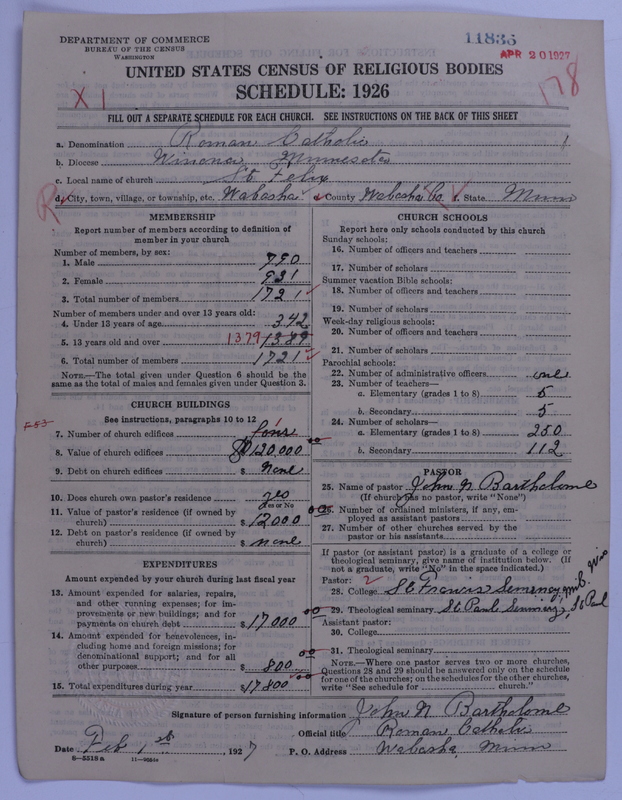 DEPARTMENT OF COMMERCE
BUREAU OF THE CENSUS
WASHINGTON
11835
APR 20 1927
178
X 1
UNITED STATES CENSUS OF RELIGIOUS BODIES
SCHEDULE: 1926
FILL OUT A SEPARATE SCHEDULE FOR EACH CHURCH. SEE INSTRUCTIONS ON THE BACK OF THIS SHEET
a. Denomination Roman Catholic
b. Diocese Winona, Minnesota
c. Local name of church St Felix
d. City, town, village, or township, etc. Wabasha County Wabasha Co f. State Minn
MEMBERSHIP
Report number of members according to definition of
member in your church
Number of members, by sex:
1. Male 790
2. Female 931
3. Total number of members 1721
Number of members under and over 13 years old:
4. Under 13 years of age 342
5. 13 years old and over 1379 1389
6. Total number of members 1721
NOTE.—The total given under Question 6 should be the
same as the total of males and females given under Question 3.
CHURCH BUILDINGS
See instructions, paragraphs 10 to 12
7. Number of church edifices
8. Value of church edifices $ 120,000
9. Debt on church edifices $ None
10. Does church own pastor's residence yes
Yes or No
11. Value of pastor's residence (if owned by
church) $ 12000
12. Debt on pastor's residence (if owned by
church) $ none
EXPENDITURES
Amount expended by your church during last fiscal year
13. Amount expended for salaries, repairs,
and other running expenses; for im-
provements or new buildings; and for
payments on church debt $ 17,000
14. Amount expended for benevolences, in-
cluding home and foreign missions; for
denominational support; and for all
other purposes $ 800
15. Total expenditures during year $ 17800
CHURCH SCHOOLS
Report here only schools conducted by this church
Sunday schools:
16. Number of officers and teachers
17. Number of scholars
Summer vacation Bible schools:
18. Number of officers and teachers
19. Number of scholars
Week-day religious schools:
20. Number of officers and teachers
21. Number of scholars
Parochial schools:
22. Number of administrative officers one
23. Number of teachers—
a. Elementary (grades 1 to 8) 5
b. Secondary 5
24. Number of scholars—
a. Elementary (grades 1 to 8) 250
b. Secondary 112
PASTOR
25. Name of pastor John N Bartholome
(If church has no pastor, write "None")
26. Number of ordained ministers, if any, em-
ployed as assistant pastors
27. Number of other churches served by the
pastor or his assistants
If pastor (or assistant pastor) is a graduate of a college or
theological seminary, give name of institution below. (If
not a graduate, write "No" in the space indicated.)
Pastor: 2
28. College St Francis Seminary, Wis
29. Theological seminary St Paul Seminary, St Paul
Assistant pastor:
30. College
31. Theological seminary
NOTE.—Where one pastor serves two or more churches,
Questions 28 and 29 should be answered only on the schedule
for one of the churches; on the schedules for the other churches,
write "See schedule for church."
Signature of person furnishing information John N Bartholome
Official title Roman Catholic
Date Feb 1st 1927 P. O. Address Wabasha, Minn
8—5518 a